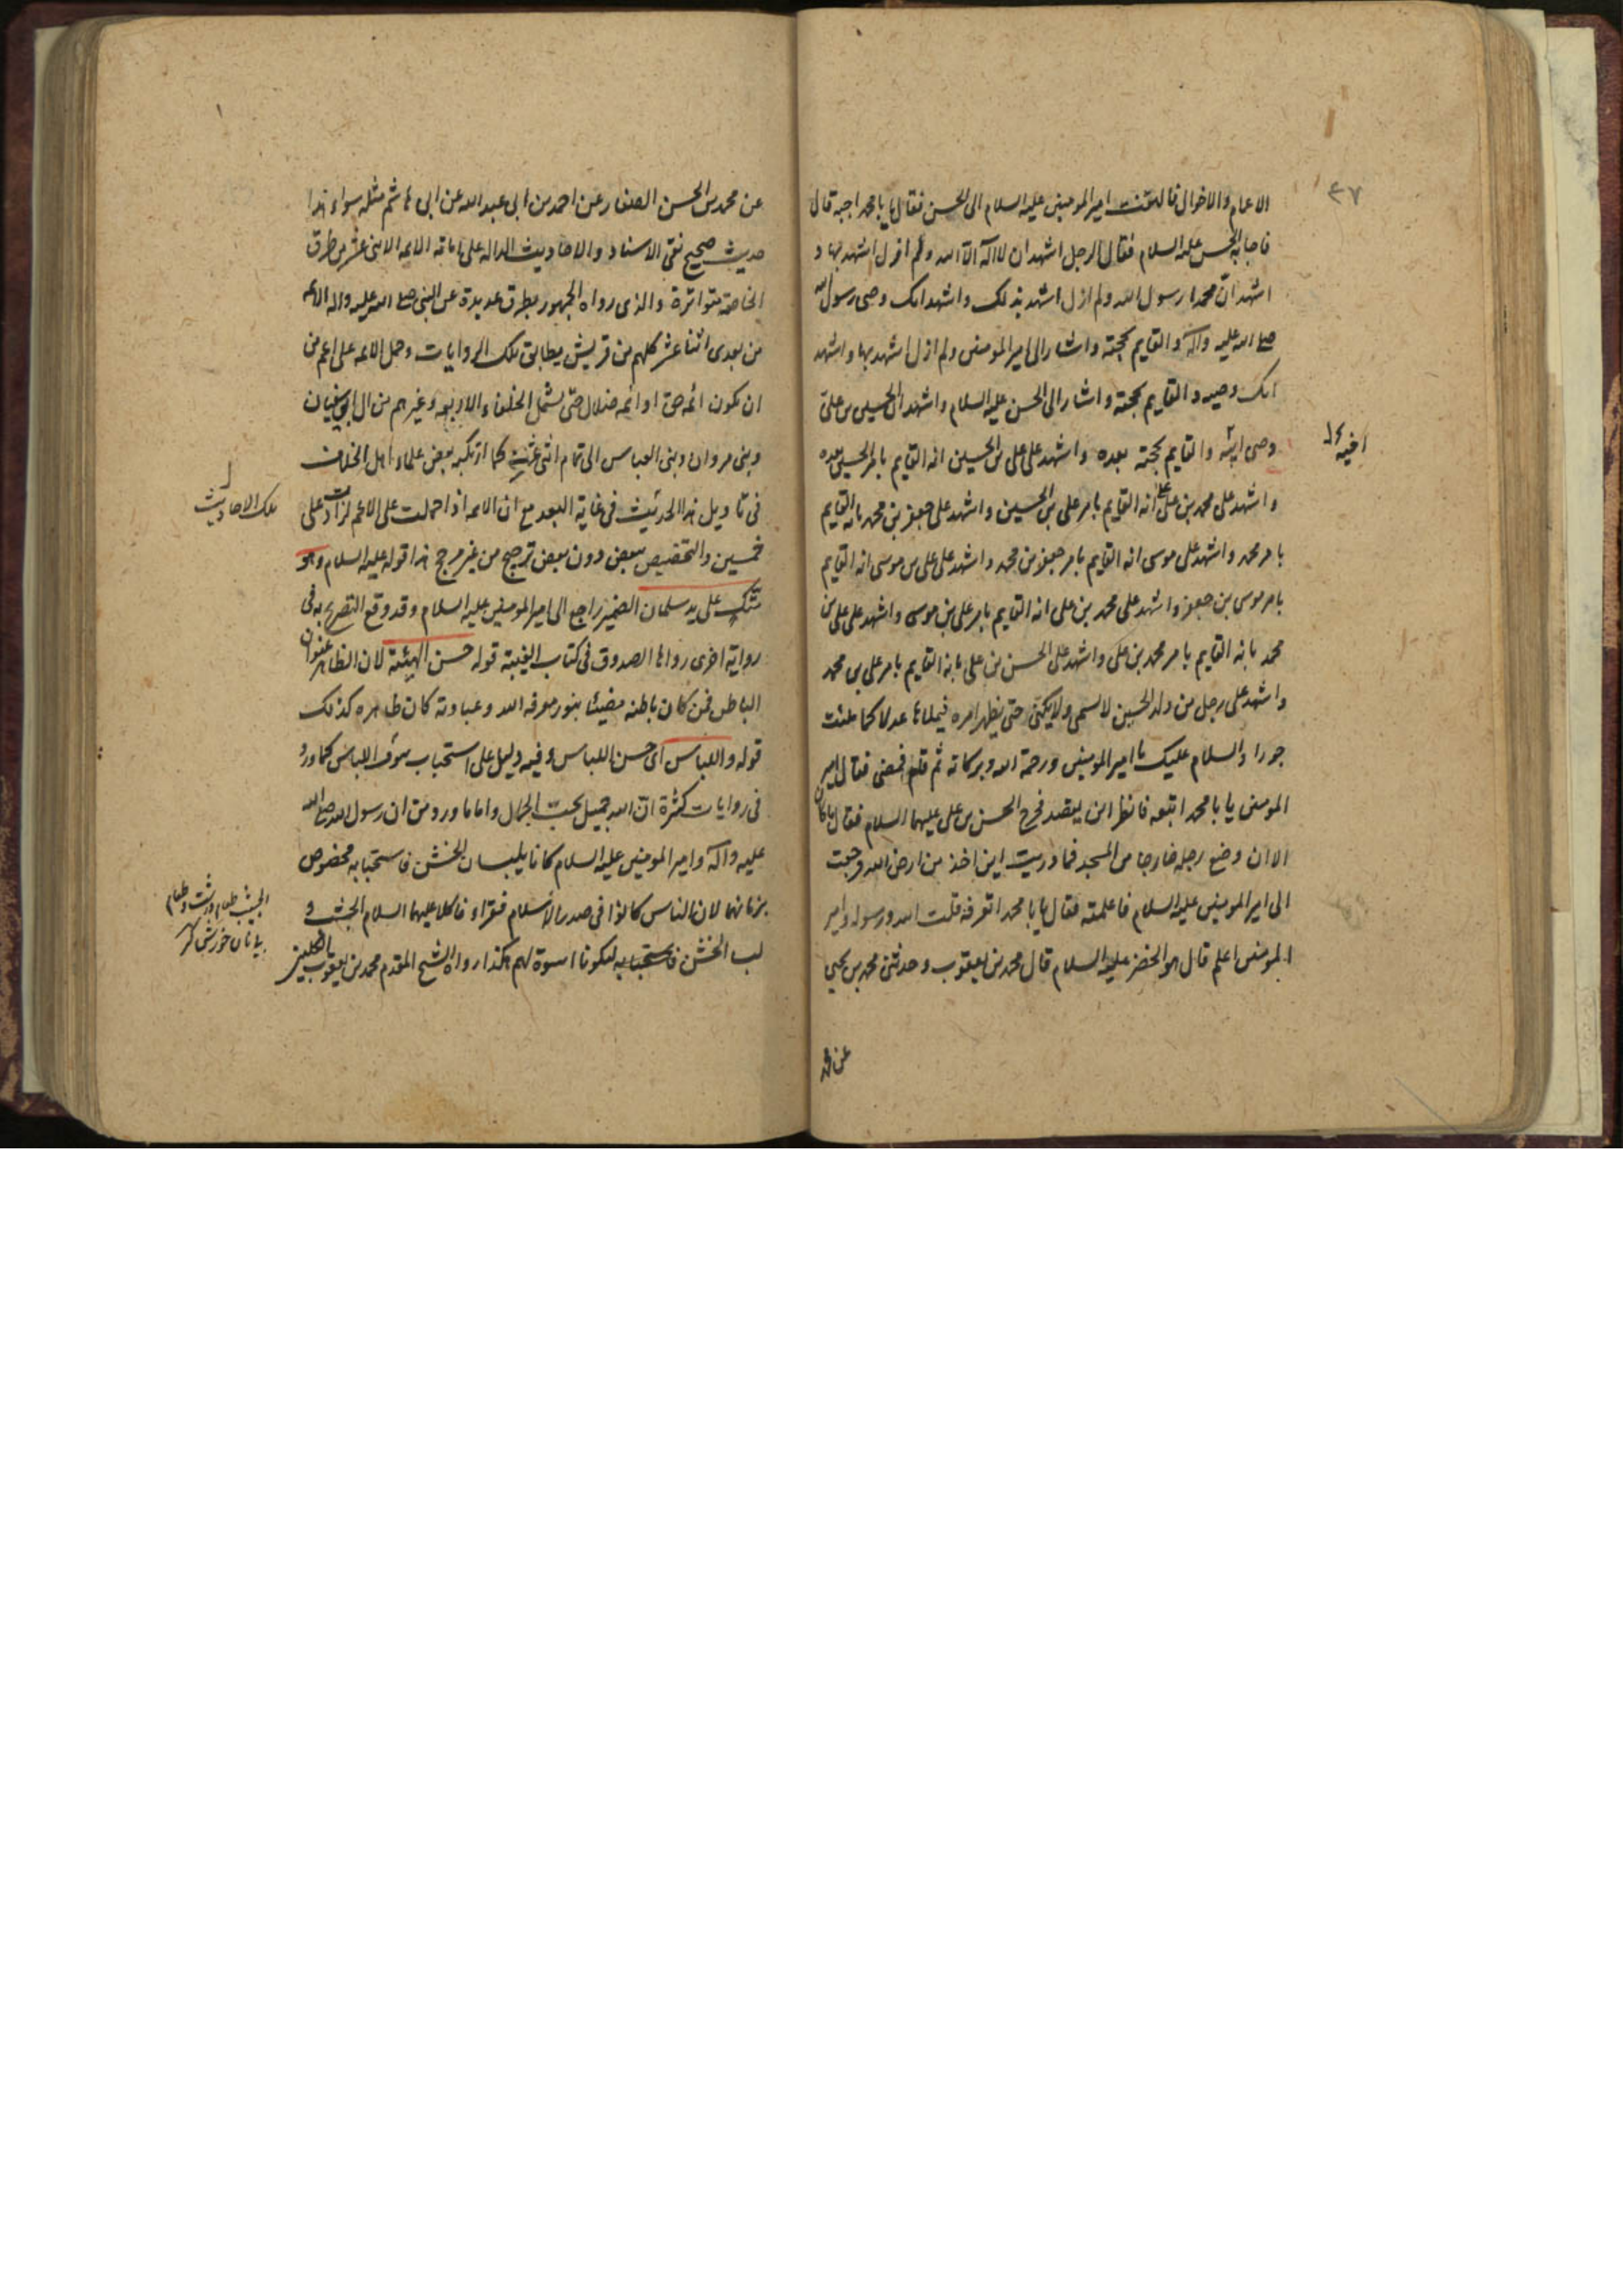 ٤٧
الاعمام والاخوال فالتفت امير المومنين عليه السلام الى الحسن فقال يا با محمد اجبه قال
فاجابه الحسن عليه السلام فقال الرجل اشهد ان لا اله الا الله ولم ازل اشهد بها و
اشهد ان محمدا رسول الله ولم ازل اشهد بذلك واشهد انك وصي رسول الله
صلى الله عليه وآله والقايم بحجته واشار الى امير المومنين ولم ازل اشهد بها واشهد
انك وصيه والقايم بحجته واشار الى الحسن عليه السلام واشهد ان الحسين بن علي
وصي ابيه والقايم بحجته بعده واشهد على علي بن الحسين انه القايم بامر الحسين بعده
اخيه
واشهد على محمد بن علي انه القايم بامر علي بن الحسين واشهد على جعفر بن محمد بانه القايم
بامر محمد واشهد على موسى انه القايم بامر جعفر بن محمد واشهد على علي بن موسى انه القايم
بامر موسى بن جعفر واشهد على محمد بن علي انه القايم بامر علي بن موسى واشهد على علي بن
محمد بانه القايم بامر محمد بن علي واشهد على الحسن بن علي بانه القايم بامر علي بن محمد
واشهد على رجل من ولد الحسين لا يسمى ولا يكنى حتى يظهر امره فيملأها عدلا كما ملئت
جورا والسلام عليك يا امير المومنين ورحمة الله وبركاته ثم قام فمضى فقال امير
المومنين يا با محمد اتبعه فانظر اين يقصد فخرج الحسن بن علي عليهما السلام فقال ما كان
الا ان وضع رجله خارجا من المسجد فما دريت اين اخذ من ارض الله فرجعت
الى امير المومنين عليه السلام فاعلمته فقال يا با محمد اتعرفه قلت الله ورسوله وامير
المومنين اعلم قال هو الخضر عليه السلام قال محمد بن يعقوب وحدثني محمد بن يحيى
عن محمد
عن محمد بن الحسن الصفار عن احمد بن ابي عبد الله عن ابي هاشم مثله سواء هذا
حديث صحيح نقى الاسناد والاحاديث الداله على امامة الائمه الاثنى عشر من طرق
الخاصة متواترة والذى رواه الجمهور بطرق عديدة عن النبى صلى الله عليه واله الائمه
من بعدى اثنا عشر كلهم من قريش يطابق تلك الروايات وحمل الائمه على اعم من
ان يكون ائمه حق او ائمه ضلال حتى يشمل الخلفاء الاربعه وغيرهم من ال ابي سفيان
وبنى مروان وبنى العباس الى تمام اثنى عشر كما ارتكبه بعض علماء اهل الخلاف
فى تاويل هذا الحديث فى غاية البعد مع ان الائمه اذا حملت على الاعم لزادت على
تلك الاحاديث
خمسين والتخصيص ببعض دون بعض ترجيح من غير مرجح هذا قوله عليه السلام وهو
متكئ على يد سلمان الضمير راجع الى امير المومنين عليه السلام وقد وقع التصريح به فى
رواية اخرى رواها الصدوق فى كتاب الغيبة قوله حسن الهيئة لان الظاهر عنوان
الباطن فمن كان باطنه مضيئا بنور معرفة الله وعبادته كان ظاهره كذلك
قوله واللباس اى حسن اللباس وفيه دليل على استحباب شرف اللباس كما ورد
فى روايات كثيرة ان الله جميل يحب الجمال واما ما ورد من ان رسول الله صلى الله
عليه وآله وامير المومنين عليه السلام كانا يلبسان الخشن فاستحبابه مخصوص
بزمانهما لان الناس كانوا فى صدر الاسلام فقراء فاكلا عليهما السلام الجشب و
الجشب طعام درشت وطعام
بى نان خورش كنز
لبسا الخشن فاستحبابه ليكونا اسوة لهم هكذا رواه الشيخ المقدم محمد بن يعقوب الكلينى